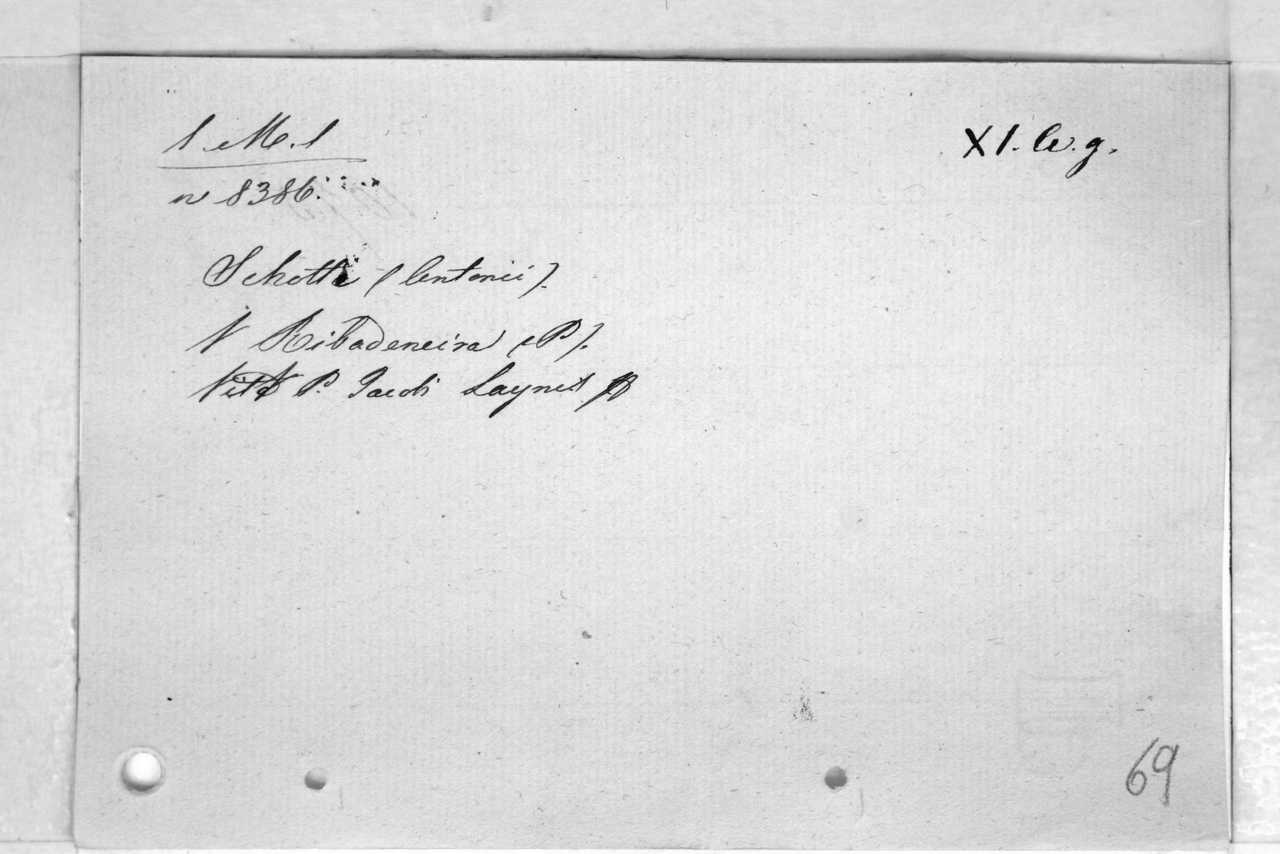 1. M. 1
XI. b. g.
n 8386.
Schotti (Antonii).
V Ribadeneira (P).
Vita P. Jacobi Laynes
69